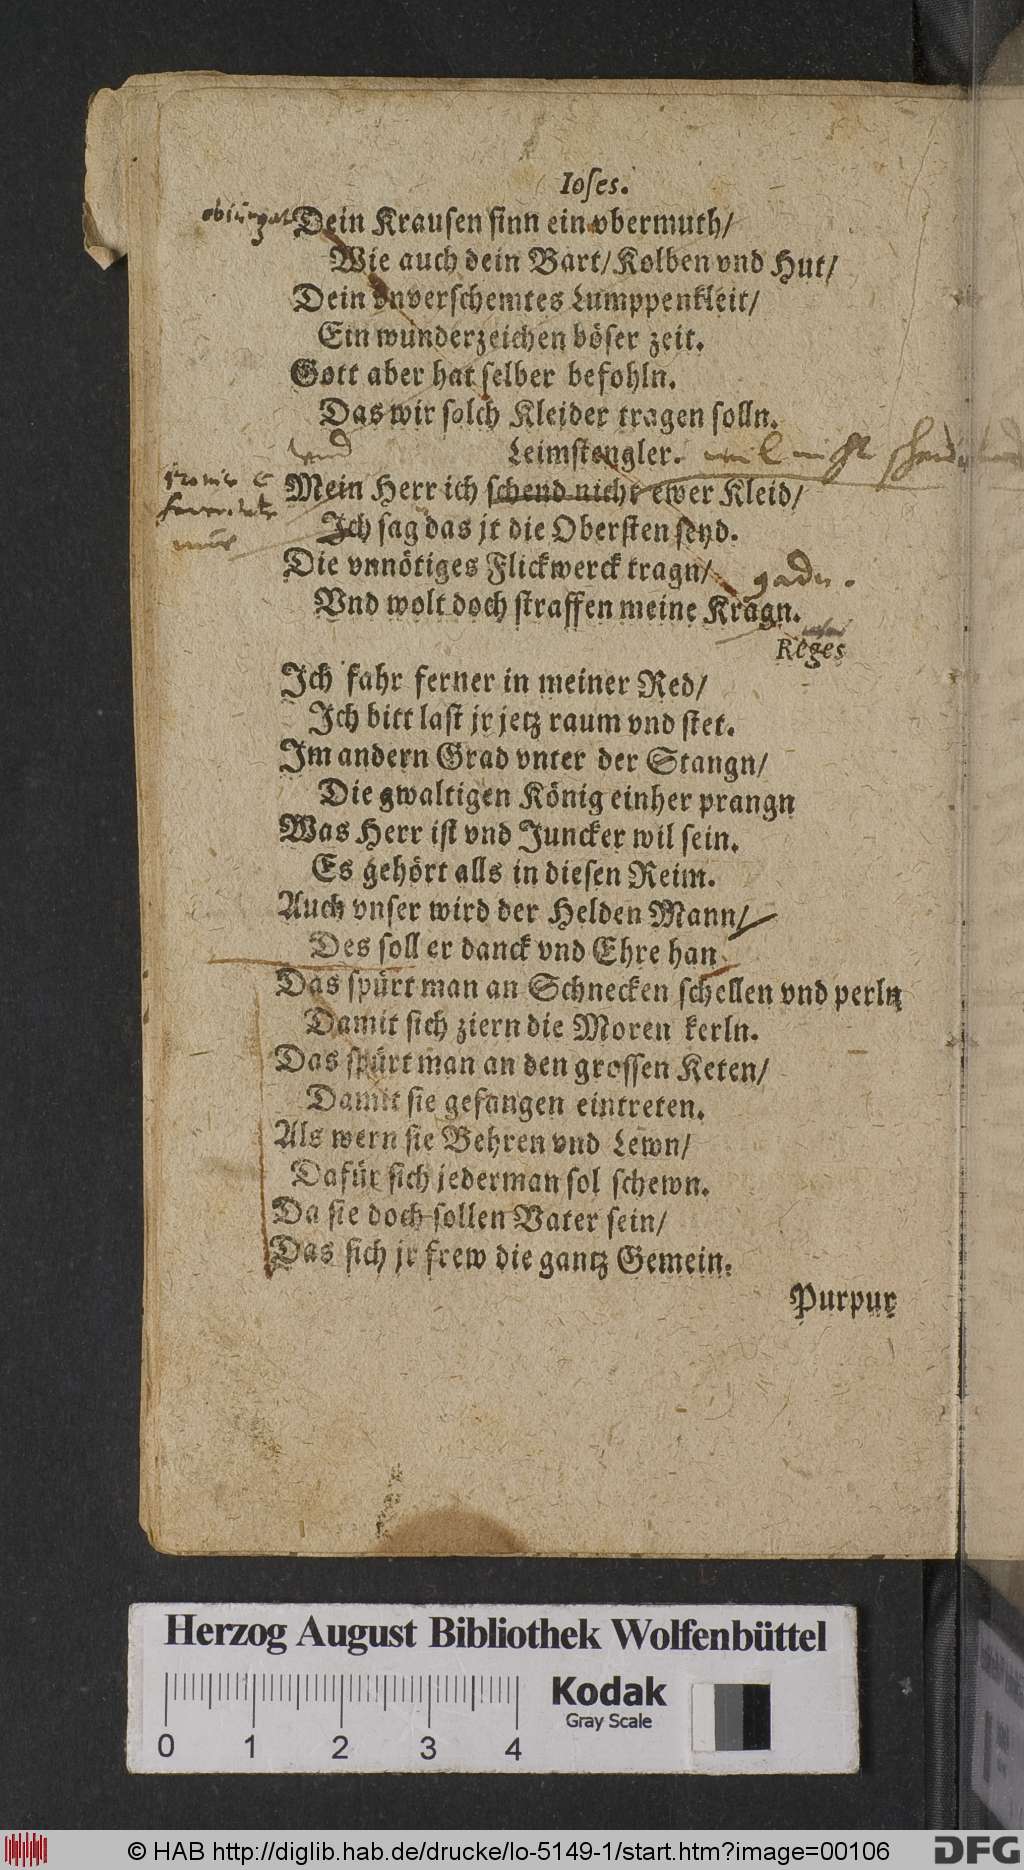 Ioſes.
Dein Krauſen ſinn ein vbermuth/
Wie auch dein Bart/ Kolben vnd Hut/
Dein vnverſchemtes Lumppenkleit/
Ein wunderzeichen böſer zeit.
Gott aber hat ſelber befohln.
Das wir ſolch Kleider tragen ſolln.
Leimſtengler. wil nicht
Mein Herr ich ſchend nicht ewer Kleid/
Ich ſag das jr die Oberſten ſeyd.
Die vnnötiges Flickwerck tragn/
Vnd wolt doch ſtraffen meine Kragn.
Reges
Ich fahr ferner in meiner Red/
Ich bitt laſt jr jetz raum vnd ſtet.
Im andern Grad vnter der Stangn/
Die gwaltigen König einher prangn
Was Herr iſt vnd Juncker wil ſein.
Es gehört alls in dieſen Reim.
Auch vnſer wird der Helden Mann/
Des ſoll er danck vnd Ehre han
Das ſpürt man an Schnecken ſchellen vnd perln
Damit ſich ziern die Moren kerln.
Das ſpürt man an den groſſen Keten/
Damit ſie gefangen eintreten.
Als wern ſie Behren vnd Lewn/
Dafür ſich jederman ſol ſchewn.
Da ſie doch ſollen Vater ſein/
Das ſich jr frew die gantz Gemein.
Purpur
Herzog August Bibliothek Wolfenbüttel
Kodak
Gray Scale
0 1 2 3 4
© HAB http://diglib.hab.de/drucke/lo-5149-1/start.htm?image=00106
DFG